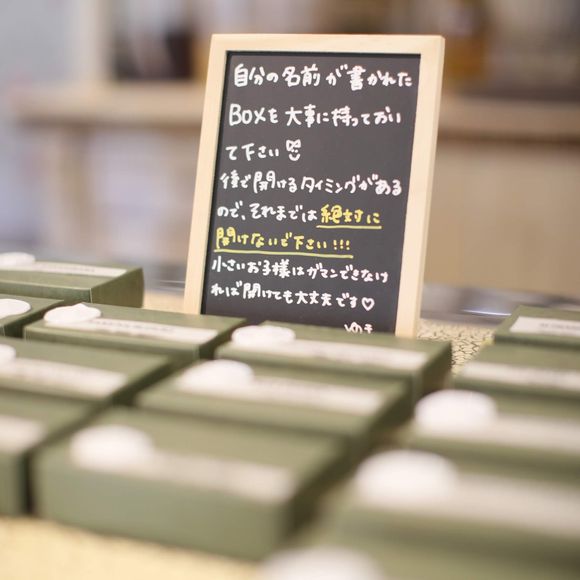 自分の名前が書かれた
BOXを大事に持っておい
て下さい
後で開けるタイミングがある
ので、それまでは絶対に
開けないで下さい!!!
小さいお子様はガマンできなけ
れば開けても大丈夫です♡
ゆき